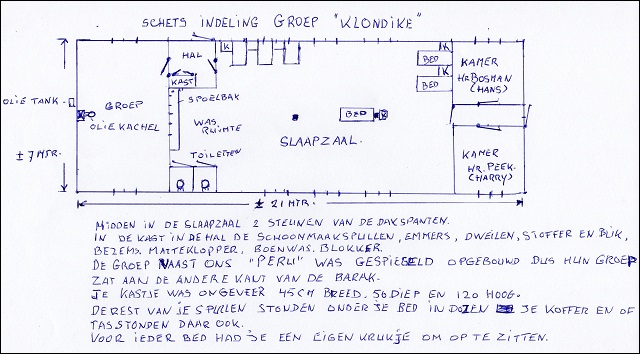 SCHETS INDELING GROEP "KLONDIKE"
HAL
K
KAST
K
BED
K
BED
KAMER
Hr BOSMAN
(HANS)
OLIE TANK.
GROEP
OLIE KACHEL
SPOELBAK
WAS
RUIMTE
BED
SLAAPZAAL.
± 7 MTR.
TOILETTEN
KAMER
HR. PEEK.
(HARRY)
± 21 MTR.
MIDDEN IN DE SLAAPZAAL 2 STEUNEN VAN DE DAKSPANTEN.
IN DE KAST IN DE HAL DE SCHOONMAAKSPULLEN, EMMERS, DWEILEN, STOFFER EN BLIK,
BEZEMS. MATTEKLOPPER, BOENWAS. BLOKKER.
DE GROEP NAAST ONS "PERU" WAS GESPIEGELD OPGEBOUND DUS HUN GROEP
ZAT AAN DE ANDERE KANT VAN DE BARAK.
JE KASTJE WAS ONGEVEER 45CM BREED. 50 DIEP EN 120 HOOG.
DE REST VAN JE SPULLEN STONDEN ONDER JE BED IN DOZEN JE KOFFER EN OF
TAS STONDEN DAAR OOK.
VOOR IEDER BED HAD JE EEN EIGEN KRUKJE OM OP TE ZITTEN.